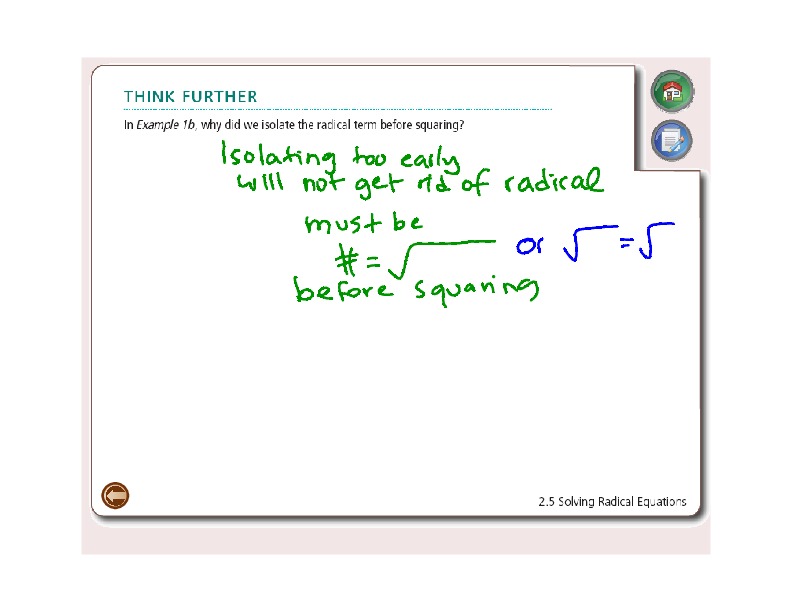 THINK FURTHER
In Example 1b, why did we isolate the radical term before squaring?
Isolating too early
will not get rid of radical
must be
# = √ or √ = √
before squaring
2.5 Solving Radical Equations